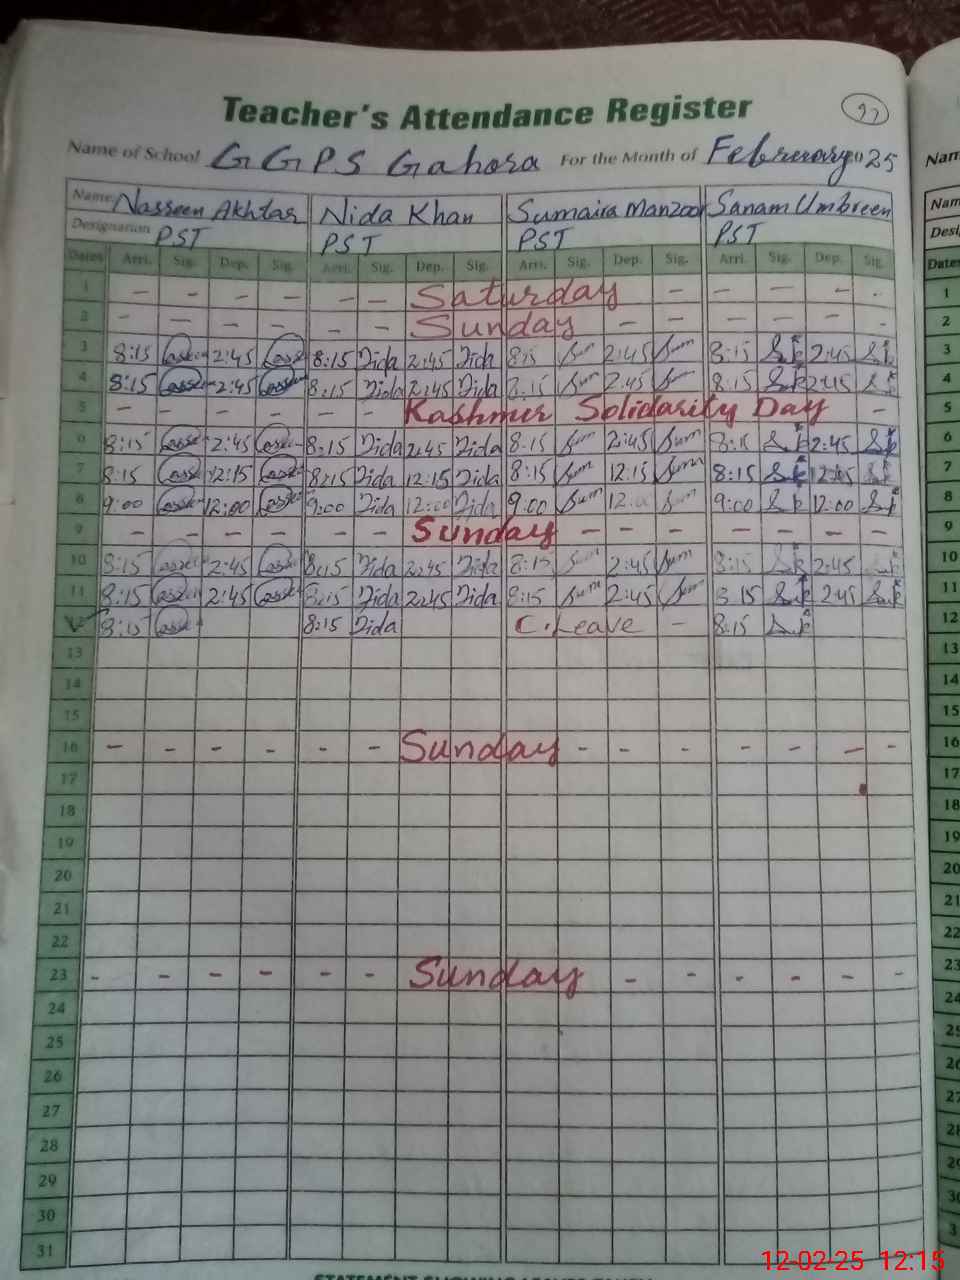 Teacher's Attendance Register 97
Name of School GGPS Gahora For the Month of February 025
Name Nasreen Akhtar Nida Khan Sumaira Manzoor Sanam Umbreen
Designation PST PST PST PST
Dates Arri. Sig. Dep. Sig. Arri. Sig. Dep. Sig. Arri. Sig. Dep. Sig. Arri. Sig. Dep. Sig.
1 - - - - - - Saturday - - - - -
2 - - - - - - Sunday - - - - - -
3 8:15 2:45 8:15 Nida 2:45 Nida 8:15 Sum 2:45 Sum 8:15 S.k 2:45 S.k
4 8:15 2:45 8:15 Nida 2:45 Nida 8:15 Sum 2:45 Sum 8:15 S.k 2:45 S.k
5 - - - - - - Kashmir Solidarity Day -
6 8:15 2:45 8:15 Nida 2:45 Nida 8:15 Sum 2:45 Sum 8:15 S.k 2:45 S.k
7 8:15 12:15 8:15 Nida 12:15 Nida 8:15 Sum 12:15 Sum 8:15 S.k 12:15 S.k
8 9:00 12:00 9:00 Nida 12:00 Nida 9:00 Sum 12:00 Sum 9:00 S.k 12:00 S.k
9 - - - - - - Sunday - - - - - - -
10 8:15 2:45 8:15 Nida 2:45 Nida 8:15 Sum 2:45 Sum 8:15 S.k 2:45
11 8:15 2:45 8:15 Nida 2:45 Nida 8:15 Sum 2:45 Sum 8:15 S.k 2:45 S.k
12 8:15 8:15 Nida C.Leave - 8:15 S.k
13
14
15
16 - - - - - - Sunday - - - - - - -
17
18
19
20
21
22
23 - - - - - - Sunday - - - - - -
24
25
26
27
28
29
30
31
Nam
Nam
Desi
Dates
1
2
3
4
5
6
7
8
9
10
11
12
13
14
15
16
17
18
19
20
21
22
23
24
25
12-02-25 12:15